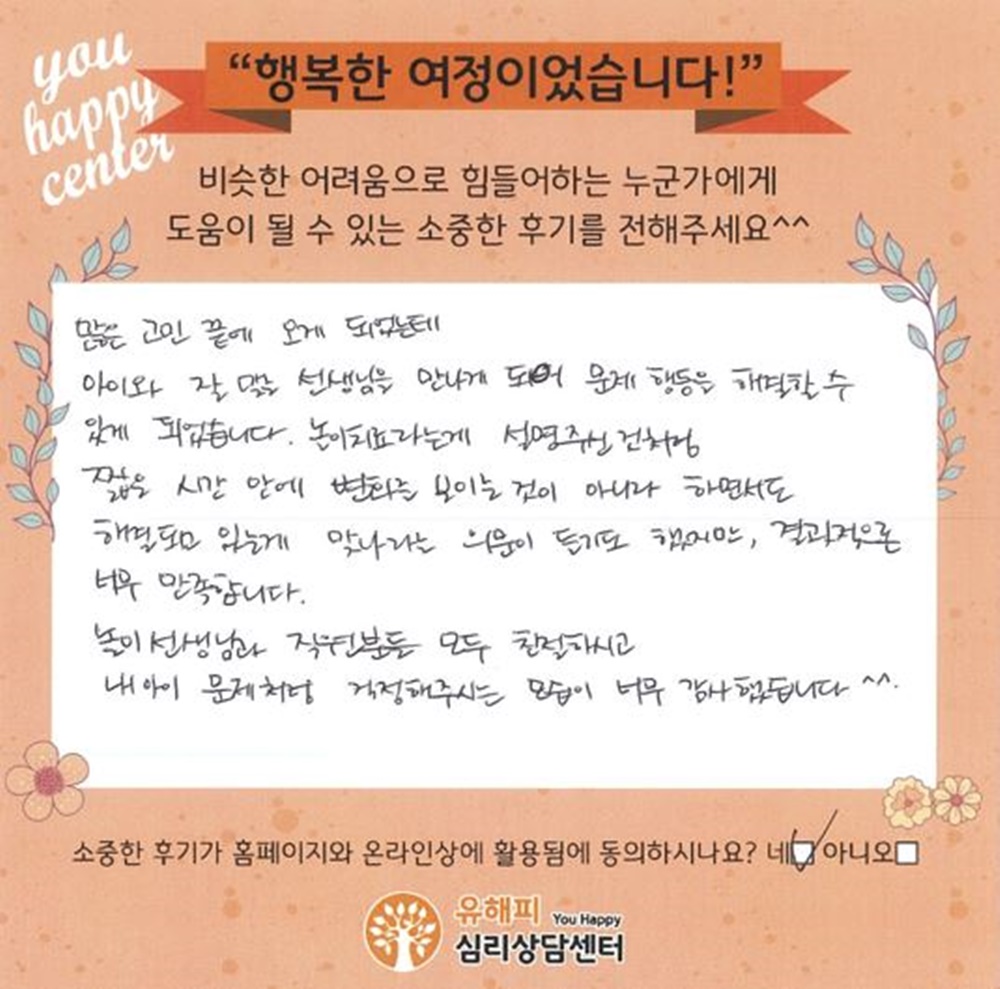 you
happy
center
“행복한 여정이었습니다!”
비슷한 어려움으로 힘들어하는 누군가에게
도움이 될 수 있는 소중한 후기를 전해주세요^^
많은 고민 끝에 오게 되었는데
아이와 잘 맞는 선생님을 만나게 되어 문제 행동을 해결할 수
있게 되었습니다. 놀이치료라는게 설명주신 것처럼
짧은 시간 안에 변화를 보이는 것이 아니라 하면서도
해결되고 있는게 맞나라는 의문이 들기도 했지만, 결과적으론
너무 만족합니다.
놀이선생님과 직원분들 모두 친절하시고
내 아이 문제처럼 걱정해주시는 모습이 너무 감사했습니다 ^^.
소중한 후기가 홈페이지와 온라인상에 활용됨에 동의하시나요? 네 아니오
유해피 You Happy
심리상담센터